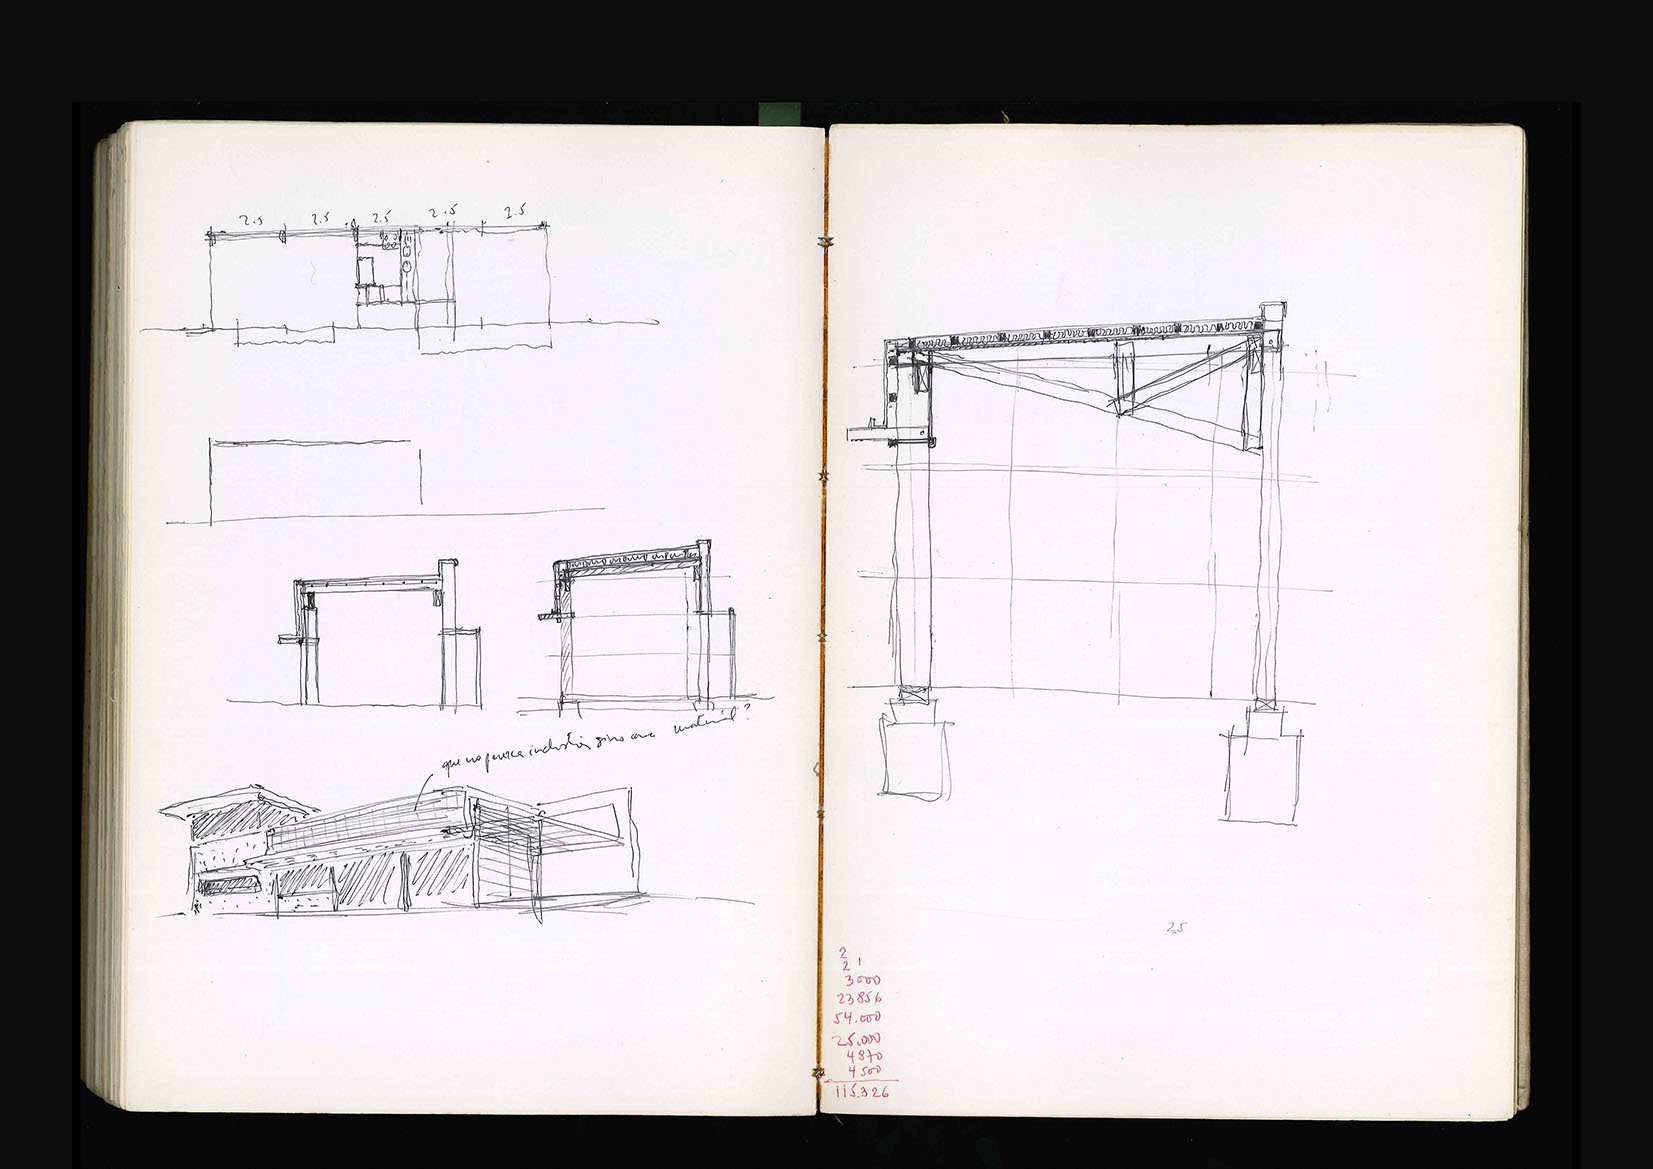 2.5 2.5 2.5 2.5 2.5
que no parezca industria sino una material?
25
2
2 1
3000
23856
54.000
25.000
4870
4500
115.326